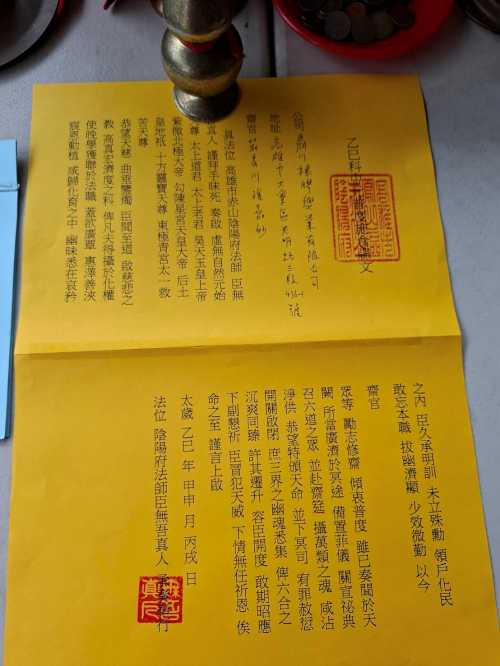 乙巳科
文
公司
地址 高雄市大寮區光明路三段 號
齋官
具法位 高雄市赤山陰陽府法師 臣無
真人 謹拜手昧死 奏啟 虛無自然元始
尊 太上道君 太上老君 昊天至皇上帝
紫微北極大帝 勾陳星宮天皇大帝 后土
皇地祇 十方靈寶天尊 東極青宮太一救
苦天尊
恭望天慈 曲垂鑒燭 臣聞至道 啟慈悲之
教 高真宏濟度之科 俾凡夫得攝於化權
使晚學獲聯於法職 蓋欲廣覃 惠澤普浹
宸恩動植 咸歸化育之中 幽昧悉在哀矜
之內 臣久承明訓 未立殊勳 領戶化民
敢忘本職 拔幽濟顯 少效微勤 以今
齋官
眾等 勵志修齋 傾衷普度 雖已奏聞於天
闕 所當廣濟於冥途 備置菲儀 關宣祕典
召六道之眾 並赴齋筵 攝萬類之魂 咸沾
淨供 恭望特頒天命 並下冥司 有罪赦愆
開關啟閉 庶三界之幽魂悉集 俾六合之
沉爽同臻 許其遷升 容臣開度 敢期昭應
下副懇祈 臣冒犯天威 下情無任祈恩 俟
命之至 謹言上啟
太歲 乙巳 年 甲申 月 丙戌 日
法位 陰陽府法師臣無吾真人 行